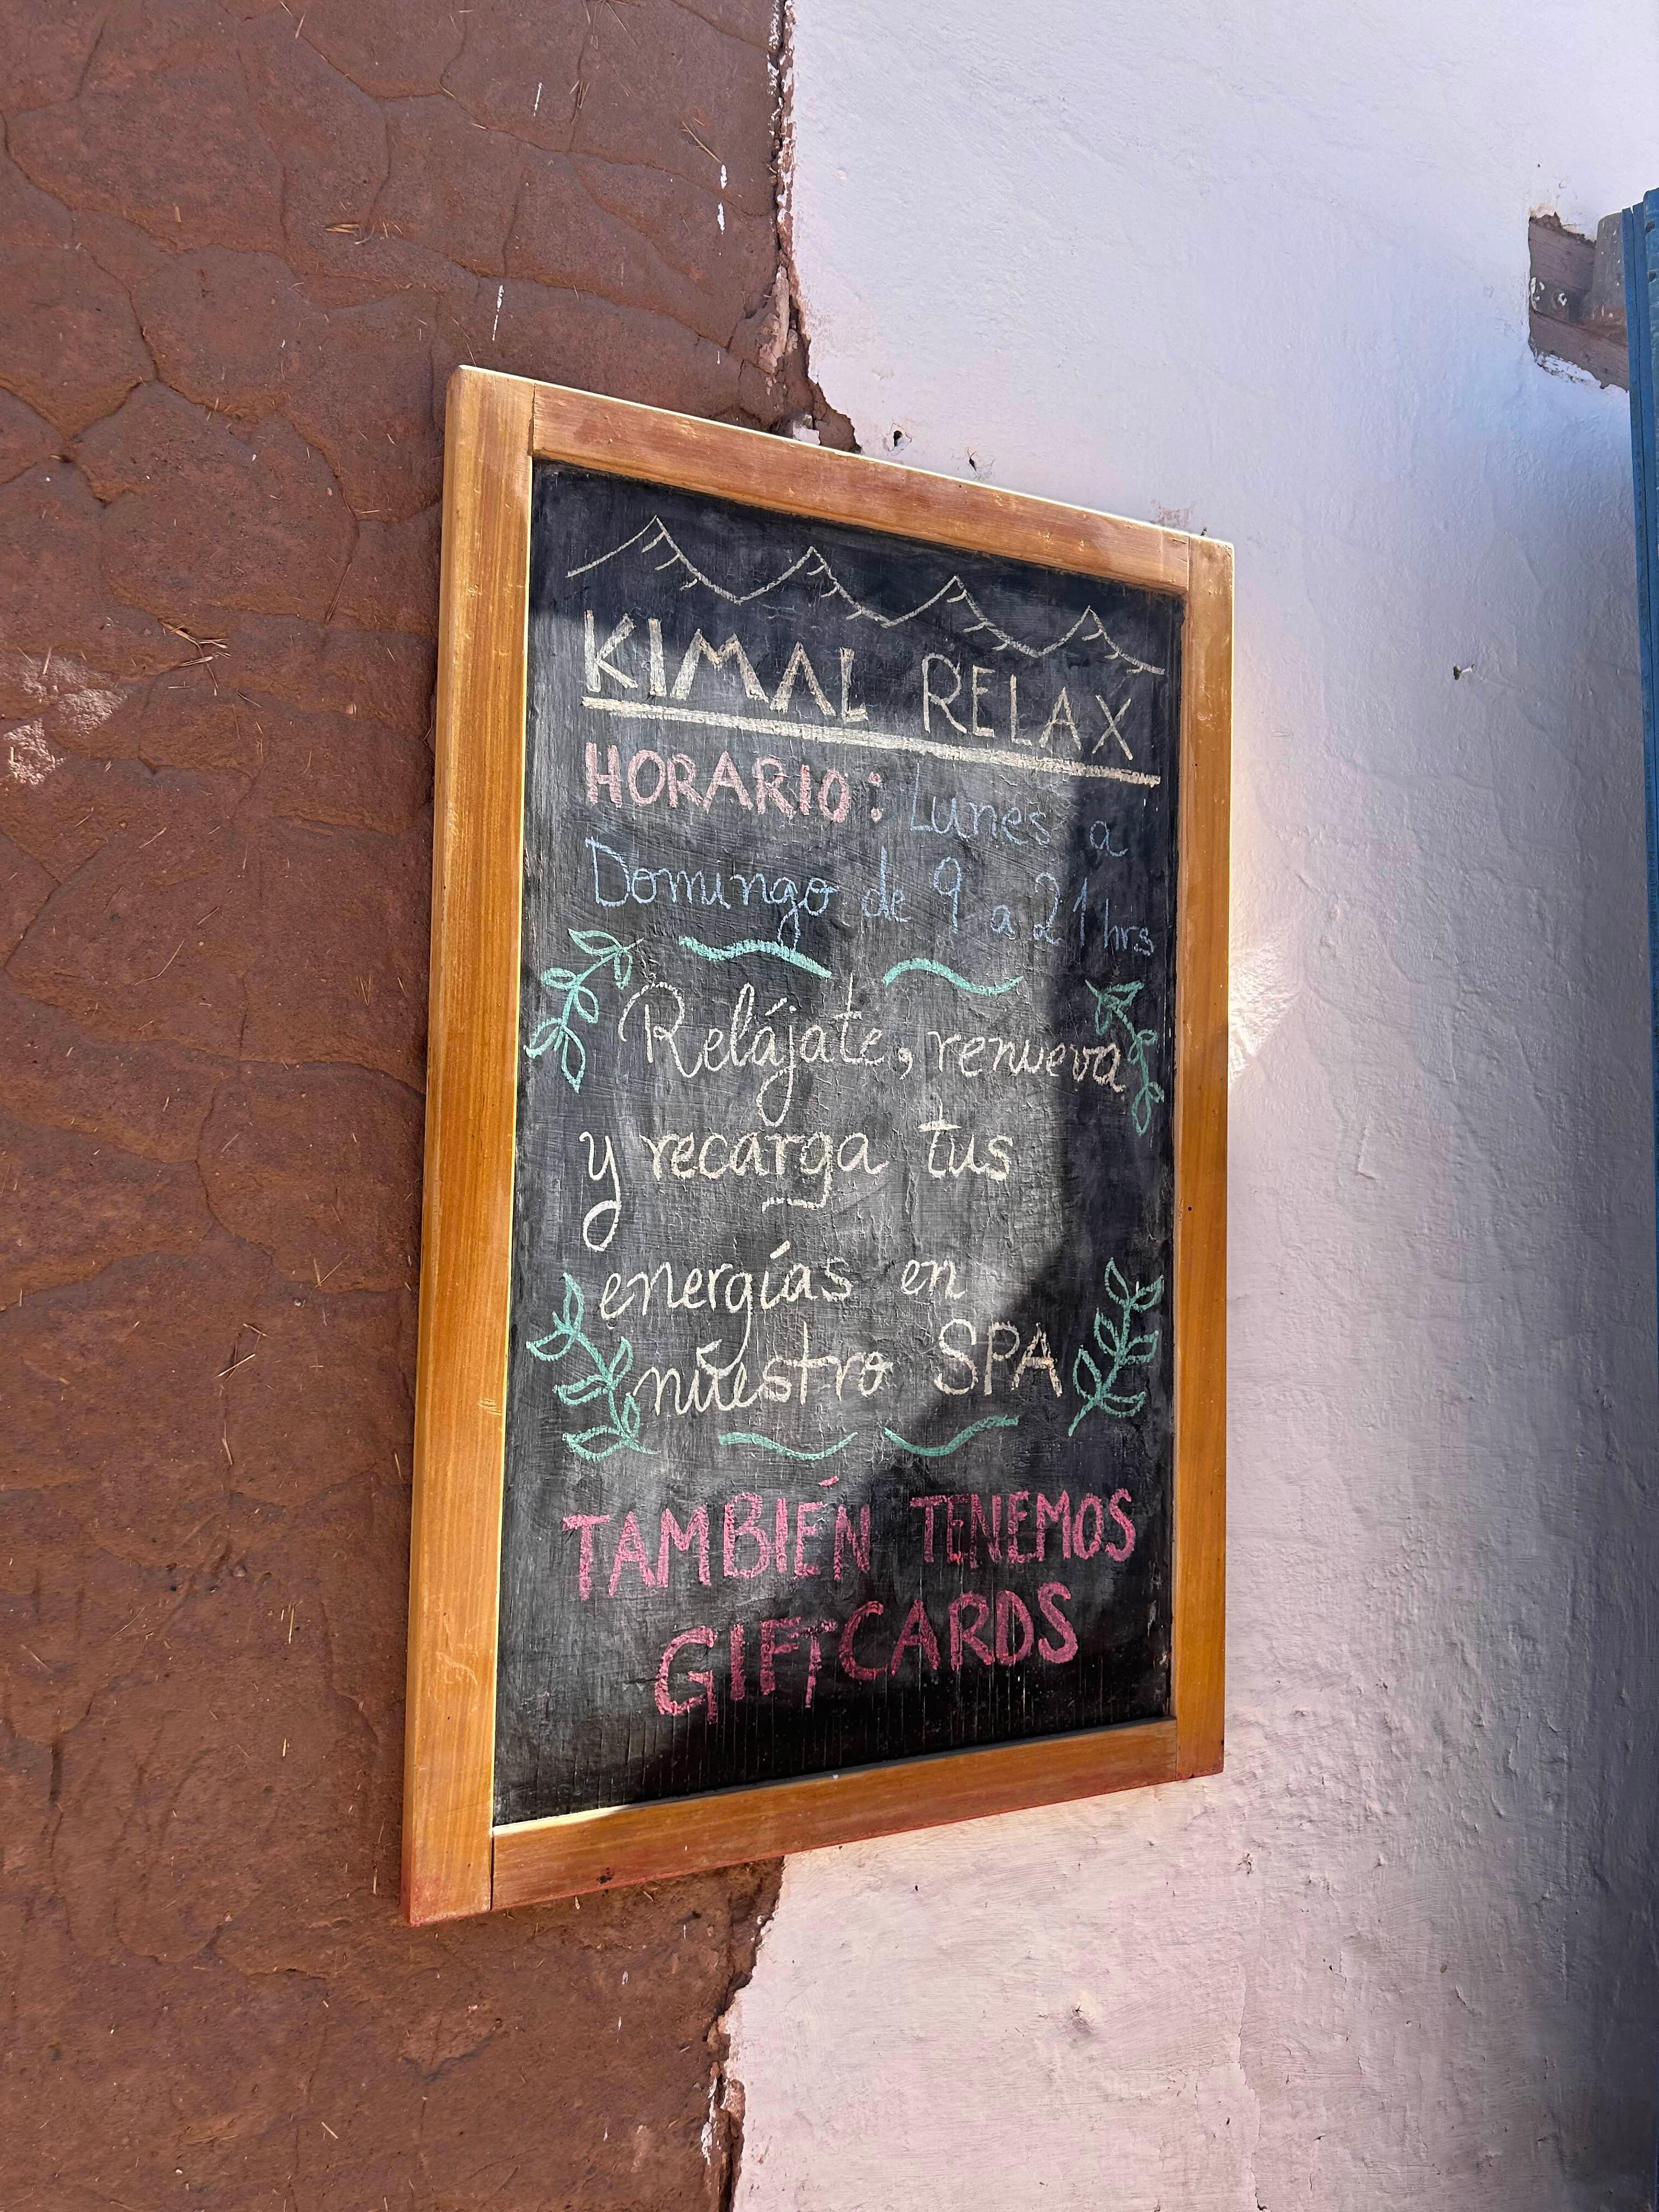 KIMAL RELAX
HORARIO: Lunes a
Domingo de 9 a 21 hrs
Relájate, renueva
y recarga tus
energías en
nuestro SPA
TAMBIÉN TENEMOS
GIFTCARDS